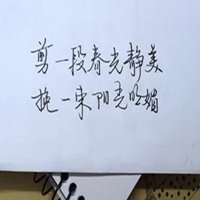 剪一段春光静美
挽一束阳光明媚